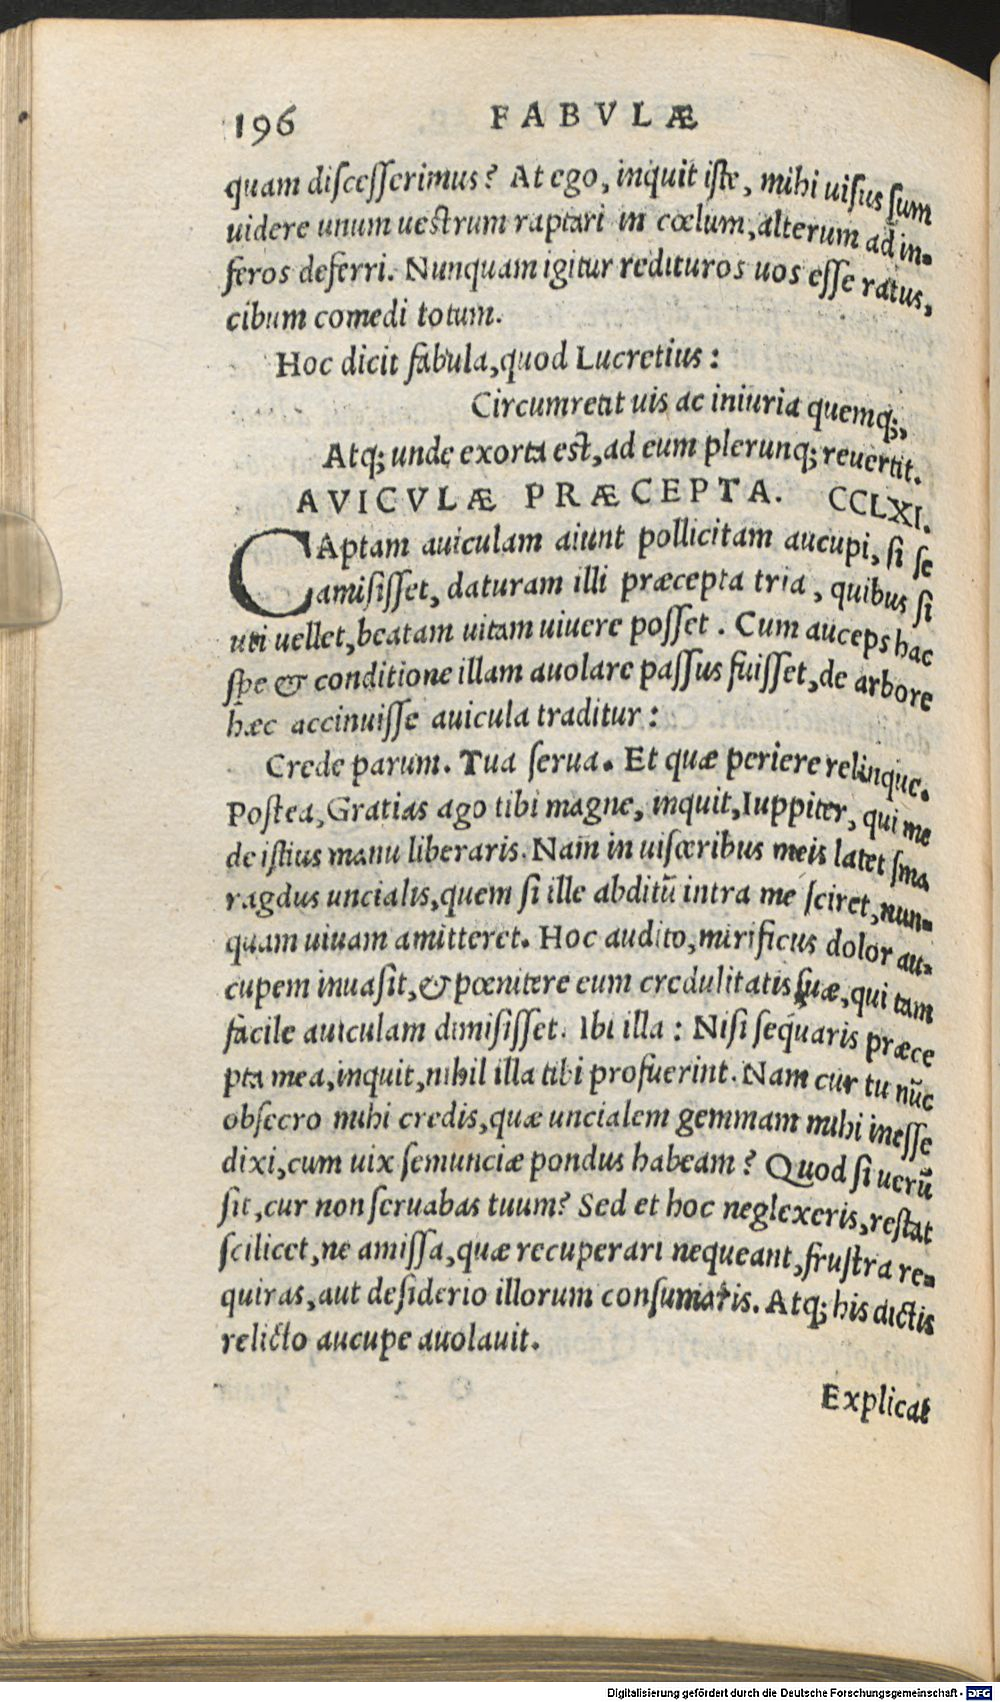 196 FABVLÆ
quam discesserimus? At ego, inquit iste, mihi uisus sum
uidere unum uestrum raptari in cœlum, alterum ad in-
feros deferri. Nunquam igitur redituros uos esse ratus,
cibum comedi totum.
Hoc dicit fabula, quod Lucretius:
Circumretit uis ac iniuria quemq;,
Atq; unde exorta est, ad eum plerunq; reuertit.
AVICVLÆ PRÆCEPTA. CCLXI.
CAptam auiculam aiunt pollicitam aucupi, si se
amisisset, daturam illi præcepta tria, quibus si
uti uellet, beatam uitam uiuere posset. Cum auceps hac
spe & conditione illam auolare passus fuisset, de arbore
hæc accinuisse auicula traditur:
Crede parum. Tua serua. Et quæ periere relinque.
Postea, Gratias ago tibi magne, inquit, Iuppiter, qui me
de istius manu liberaris. Nam in uisceribus meis latet sma
ragdus uncialis, quem si ille abditũ intra me sciret, nun-
quam uiuam amitteret. Hoc audito, mirificus dolor au-
cupem inuasit, & pœnitere eum credulitatis suæ, qui tam
facile auiculam dimisisset. Ibi illa: Nisi sequaris præce
pta mea, inquit, nihil illa tibi profuerint. Nam cur tu nũc
obsecro mihi credis, quæ uncialem gemmam mihi inesse
dixi, cum uix semunciæ pondus habeam? Quod si uerũ
sit, cur non seruabas tuum? Sed et hoc neglexeris, restat
scilicet, ne amissa, quæ recuperari nequeant, frustra re-
quiras, aut desiderio illorum consumaris. Atq; his dictis
relicto aucupe auolauit.
Explicat
Digitalisierung gefördert durch die Deutsche Forschungsgemeinschaft - DFG